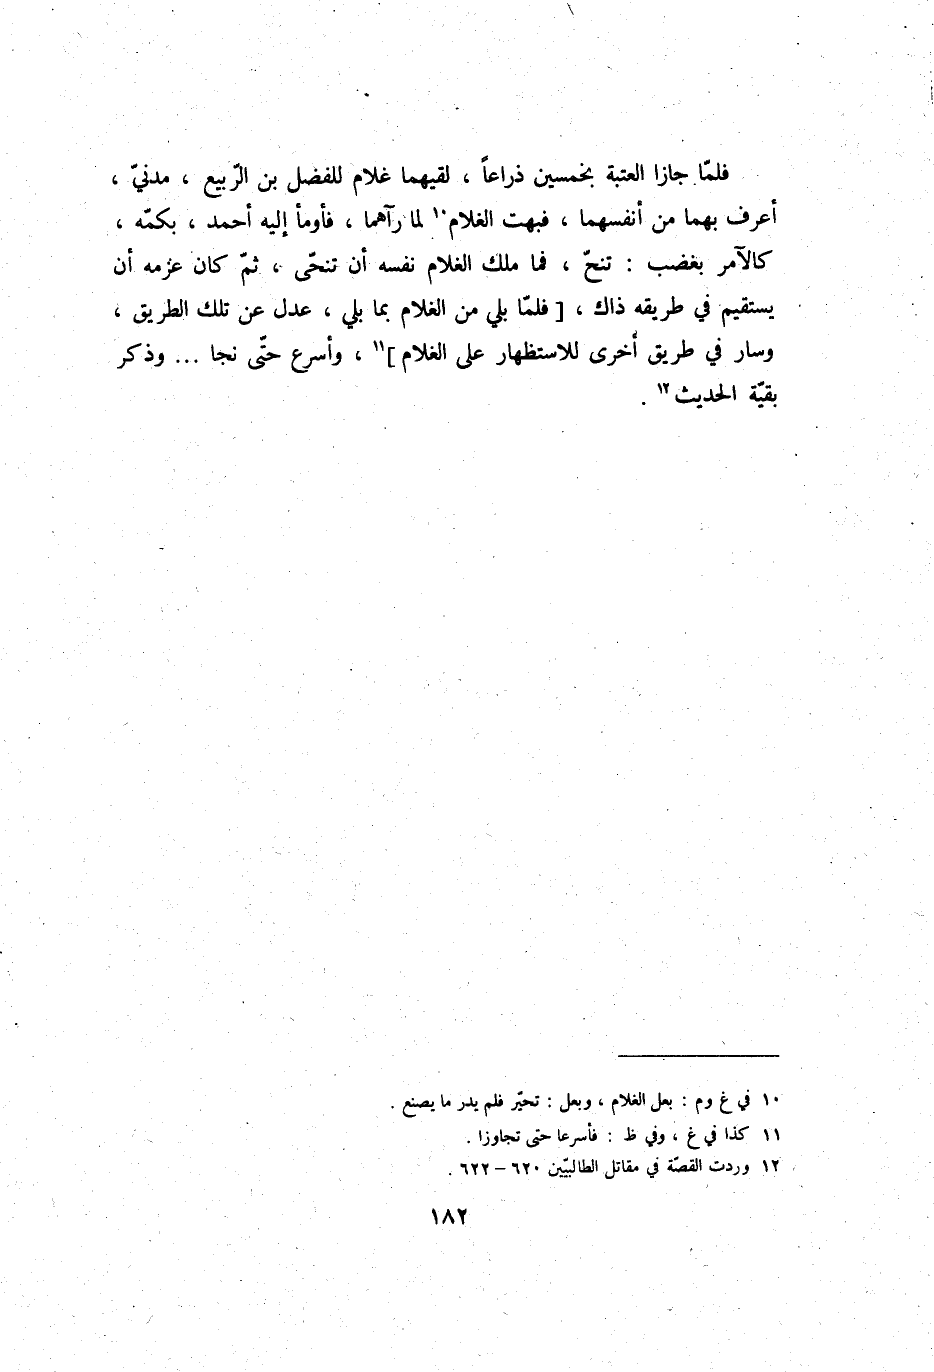 فلمّا جازا العتبة بخمسين ذراعاً ، لقيهما غلام للفضل بن الرّبيع ، مدنيّ ،
أعرف بهما من أنفسهما ، فبهت الغلام١٠ لما رآهما ، فأومأ إليه أحمد ، بكمّه ،
كالآمر بغضب : تنحّ ، فما ملك الغلام نفسه أن تنحّى ، ثمّ كان عزمه أن
يستقيم في طريقه ذاك ، [ فلمّا بلي من الغلام بما بلي ، عدل عن تلك الطريق ،
وسار في طريق أخرى للاستظهار على الغلام ]١١ ، وأسرع حتّى نجا ... وذكر
بقيّة الحديث١٢ .
١٠ في غ وم : بعل الغلام ، وبعل : تحيّر فلم يدر ما يصنع .
١١ كذا في غ ، وفي ظ : فأسرعا حتى تجاوزا .
١٢ وردت القصّة في مقاتل الطالبيّين ٦٢٠ – ٦٢٢ .
١٨٢